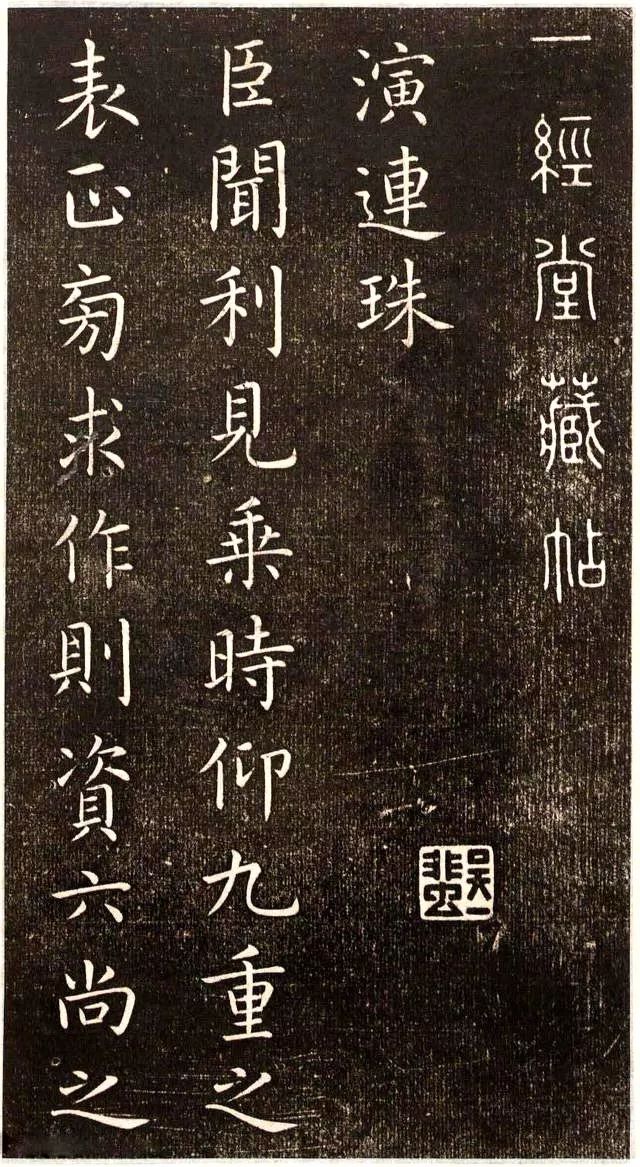 一經堂藏帖
演連珠
吳一蜚
臣聞利見乗時仰九重之
表正旁求作則資六尚之